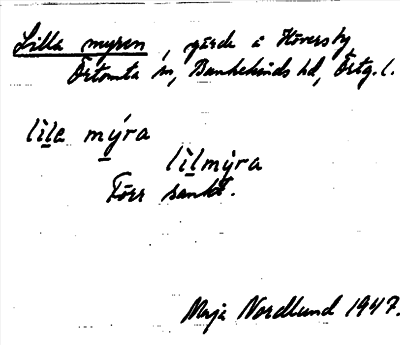 Lilla myren, gärde å Höversby,
Örtomta sn, Bankekinds hd, Östg. l.
lìle mýra
lìlmýra
Förr sankt.
Maja Nordlund 1947.